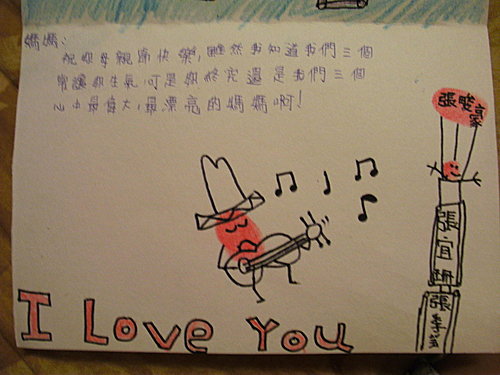 媽媽:
祝妳母親節快樂,雖然我知道我們三個
常讓妳生氣,可是妳終究還是我們三個
心中最偉大,最漂亮的媽媽啊!
張晏豪
張宜珊
張季
I Love You